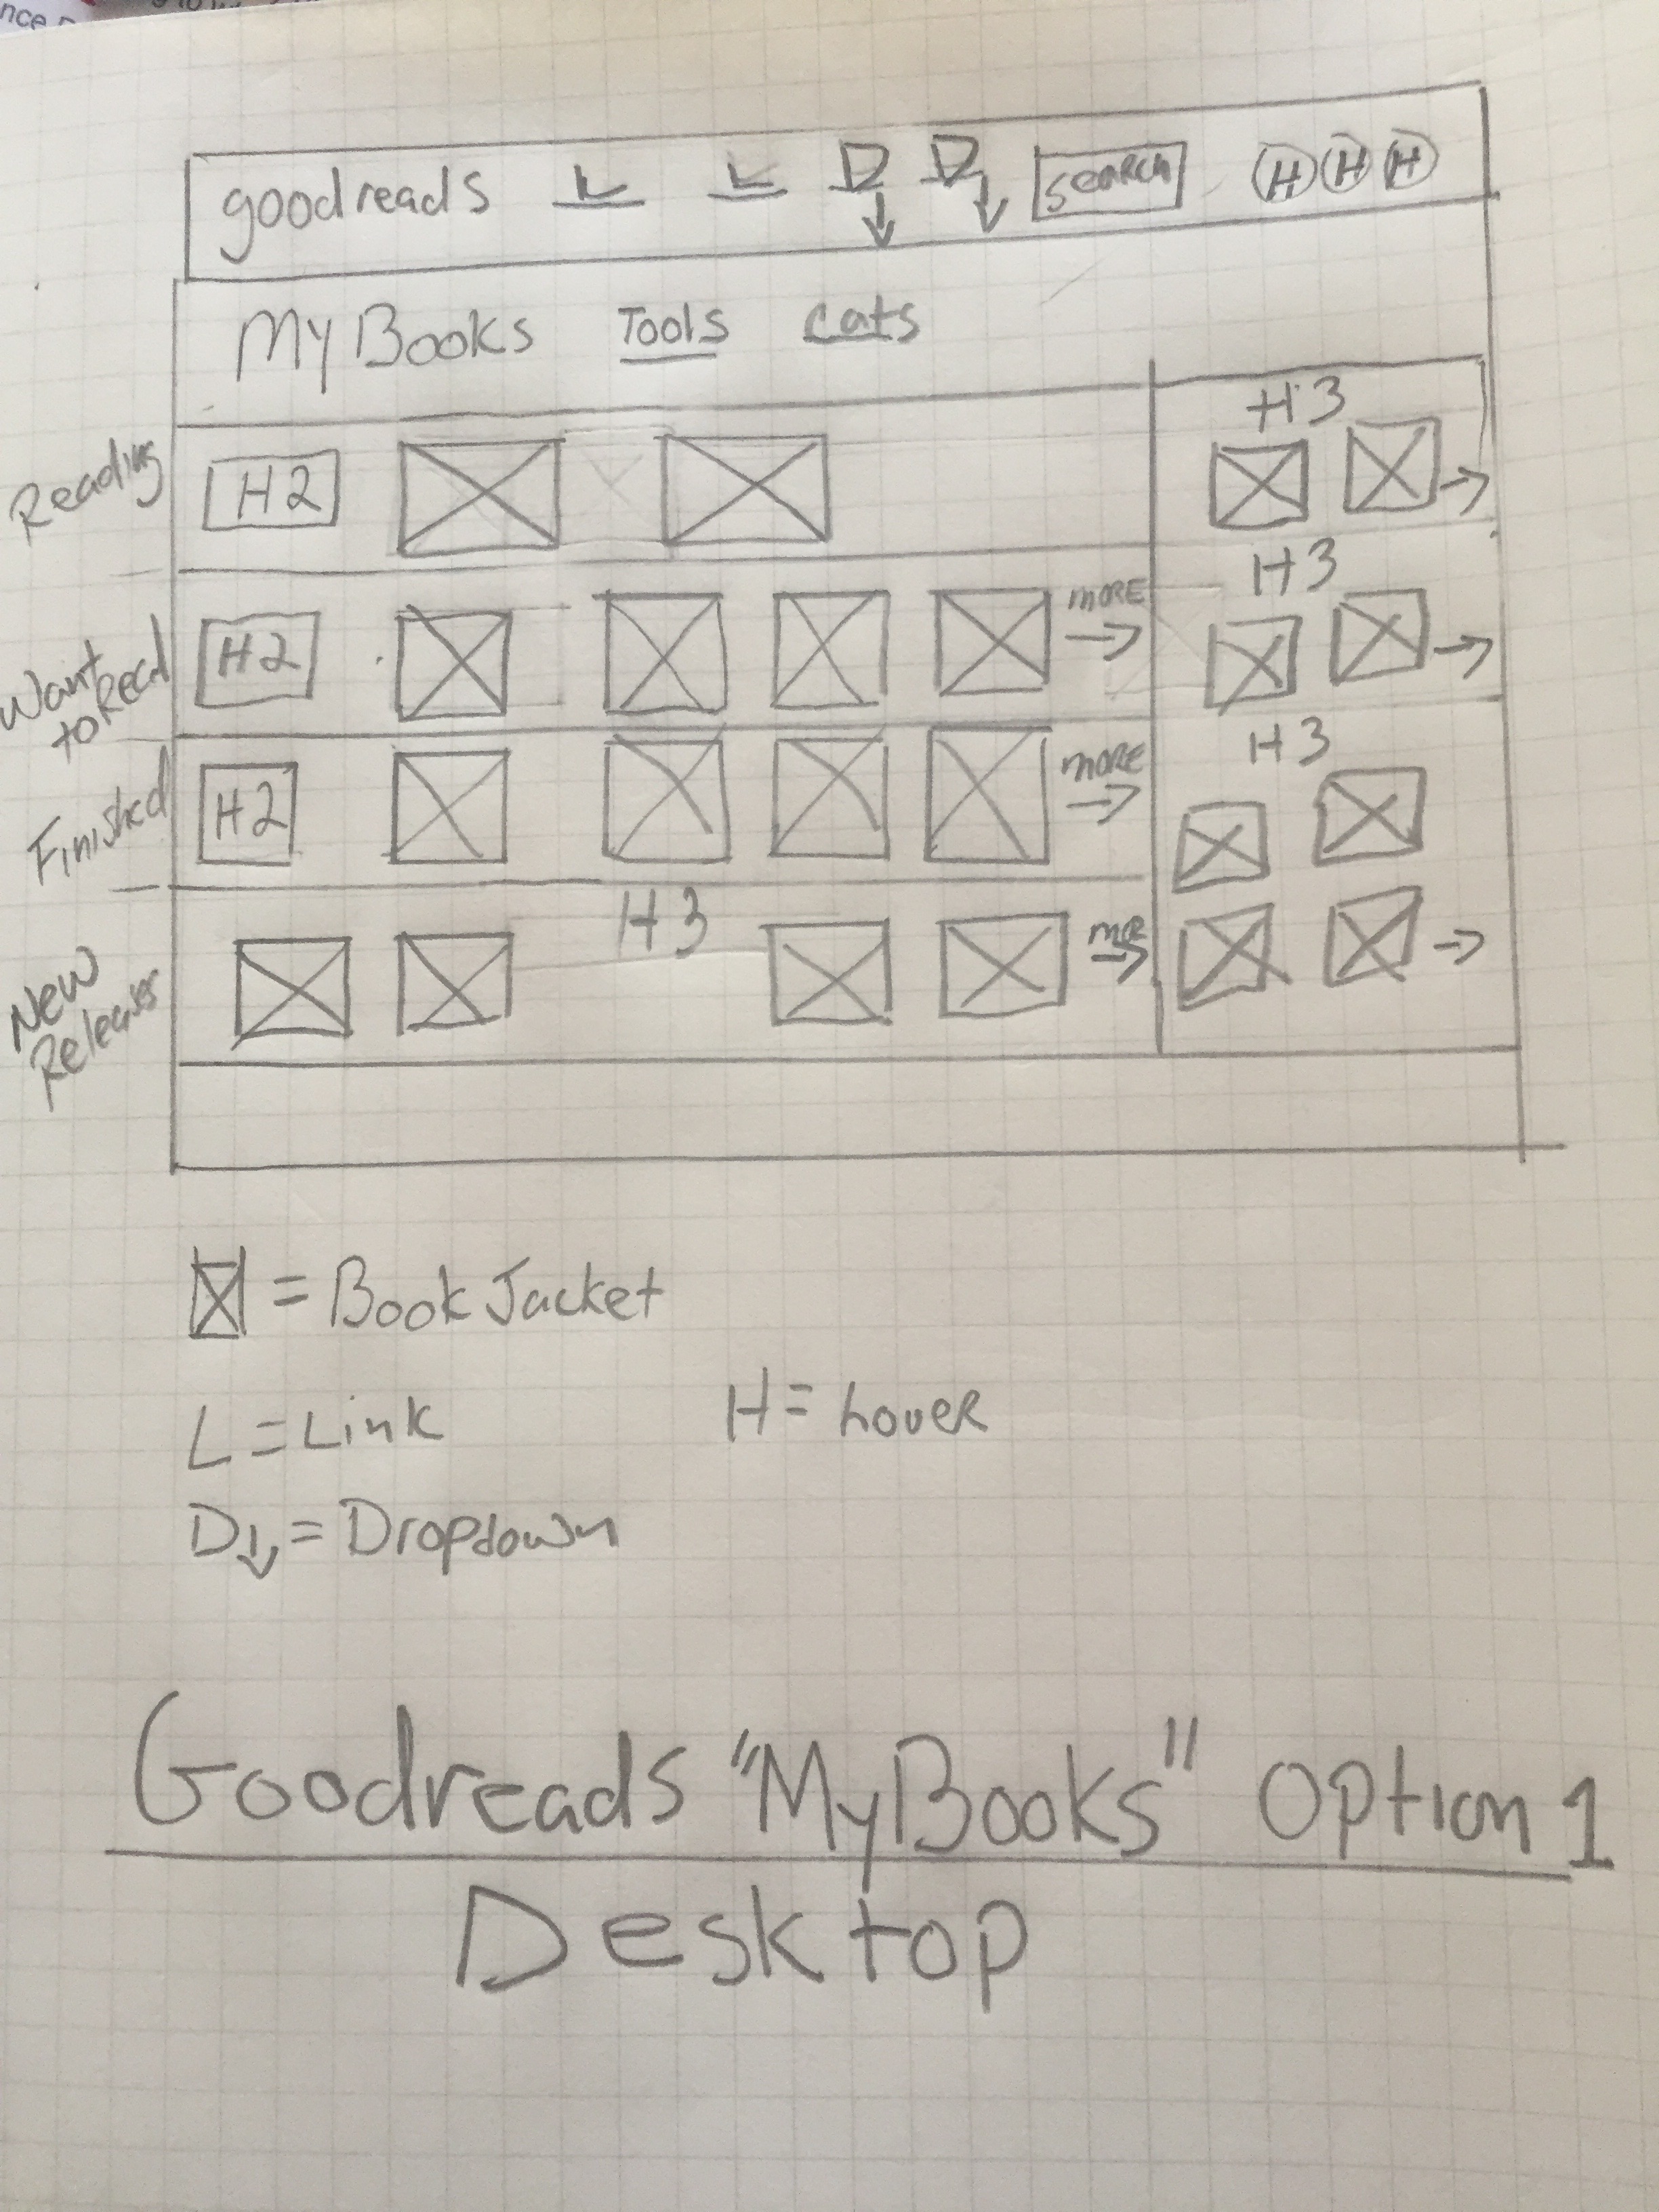 goodreads L L D D search H H H
My Books Tools cats
H3
Reading H2
H3
Want to Read H2 more
H3
Finished H2 more
H3
New Releases more
= Book Jacket
L = Link H = hover
D↓ = Dropdown
Goodreads "MyBooks" Option 1
Desktop